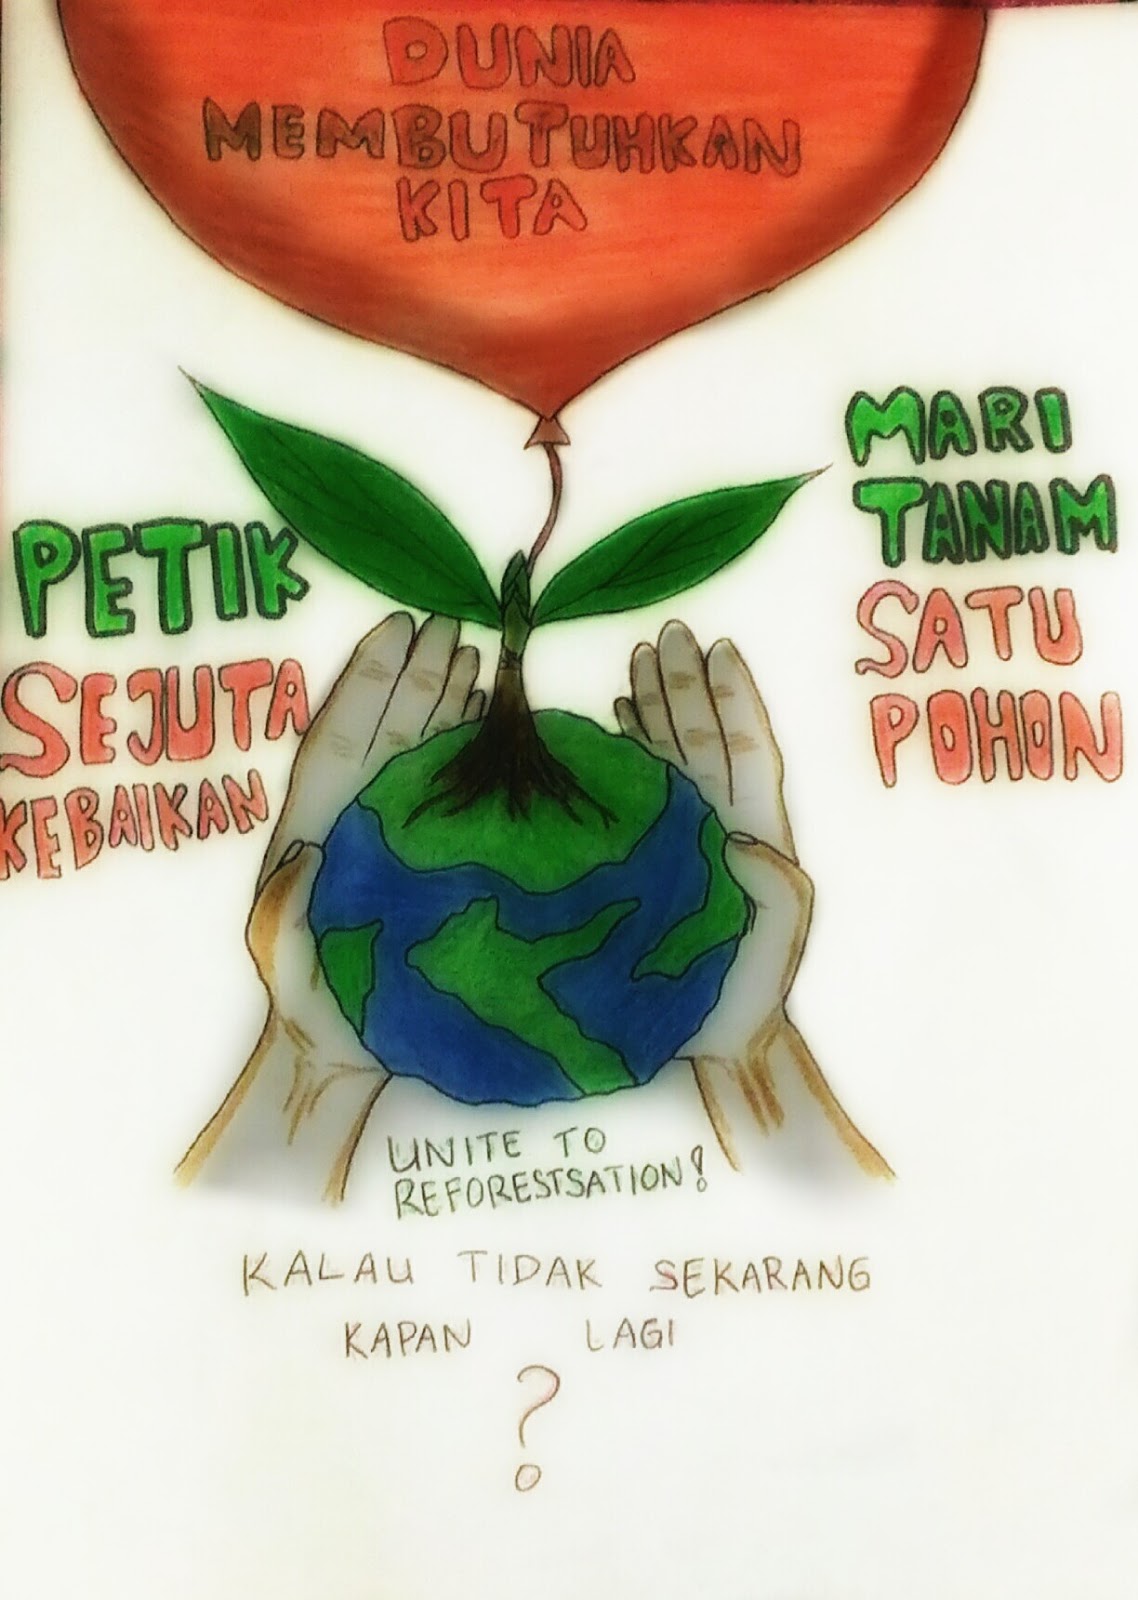 DUNIA
MEMBUTUHKAN
KITA
MARI
TANAM
SATU
POHON
PETIK
SEJUTA
KEBAIKAN
UNITE TO
REFORESTSATION!
KALAU TIDAK SEKARANG
KAPAN LAGI
?